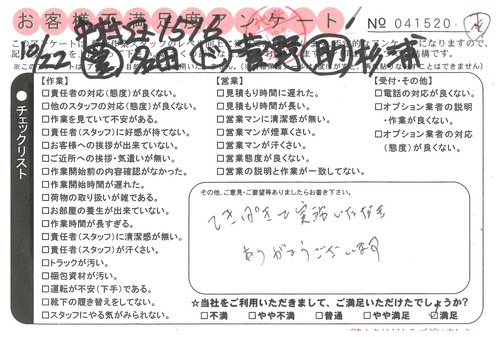 お客様不満足度アンケート
№ 041520
10/22
【作業】
□責任者の対応(態度)が良くない。
□他のスタッフの対応(態度)が良くない。
□作業を見ていて不安がある。
□責任者(スタッフ)に好感が持てない。
□お客様への挨拶が出来ていない。
□ご近所への挨拶・気遣いが無い。
□作業開始前の内容確認がなかった。
□作業開始時間が遅れた。
□荷物の取り扱いが雑である。
□お部屋の養生が出来ていない。
□作業時間が長すぎる。
□責任者(スタッフ)に清潔感が無い。
□責任者(スタッフ)が汗くさい。
□トラックが汚い。
□梱包資材が汚い。
□運転が不安(下手)である。
□靴下の履き替えをしてない。
□スタッフにやる気がみられない。
チェックリスト
【営業】
□見積もり時間に遅れた。
□見積もり時間が長い。
□営業マンに清潔感が無い。
□営業マンが煙草くさい。
□営業マンが汗くさい。
□営業態度が良くない。
□営業の説明と作業が一致してない。
【受付・その他】
□電話の対応が良くない。
□オプション業者の説明
・作業が良くない。
□オプション業者の対応
(態度)が良くない。
その他、ご意見・ご要望等ありましたらお書き下さい。
てきぱきと実施いただき
ありがとうございます
☆当社をご利用いただきまして、ご満足いただけたでしょうか?
□不満 □やや不満 □普通 □やや満足 ☑満足